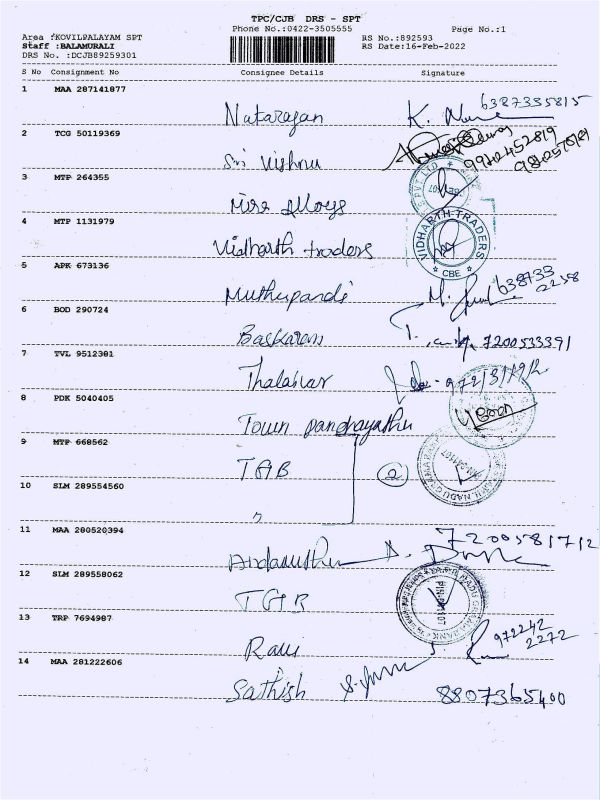 TPC/CJB DRS - SPT
Phone No.:0422-3505555 Page No.:1
Area :KOVILPALAYAM SPT RS No.:892593
Staff :BALAMURALI RS Date:16-Feb-2022
DRS No. :DCJB89259301
S No Consignment No Consignee Details Signature
1 MAA 287141877
Natarajan K. 6387335815
2 TCG 50119369
Sri Vishnu 9942452819
3 MTP 264355
Alloys
4 MTP 1131979
Vidharth traders VIDHARTH TRADERS CBE
5 APK 673136
Muthupandi M. 638733 2258
6 BOD 290724
Baskaran 7200533391
7 TVL 9512381
Thalabar
8 PDK 5040405
Town pandrayathu
9 MTP 668562
TGB 2
10 SLM 289554560
"
11 MAA 280520394
7200581712
12 SLM 289558062
TGB
13 TRP 7694987
Ravi 972242 2272
14 MAA 281222606
Sathish 8807365400